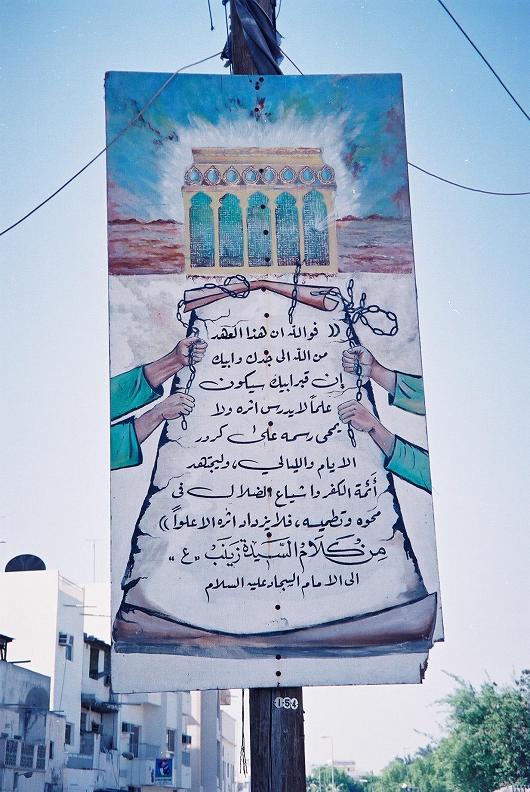 (( فوالله ان هذا العهد
من الله الى جدك وابيك
إن قبر ابيك سيكون
علماً لا يدرس اثره ولا
يمحى رسمه على كرور
الايام والليالي، وليجهد
أئمة الكفر واشياع الضلال في
محوه وتطميسه، فلا يزداد اثره الا علواً ))
من كلام السيدة زينب "ع"
الى الامام السجاد عليه السلام
154